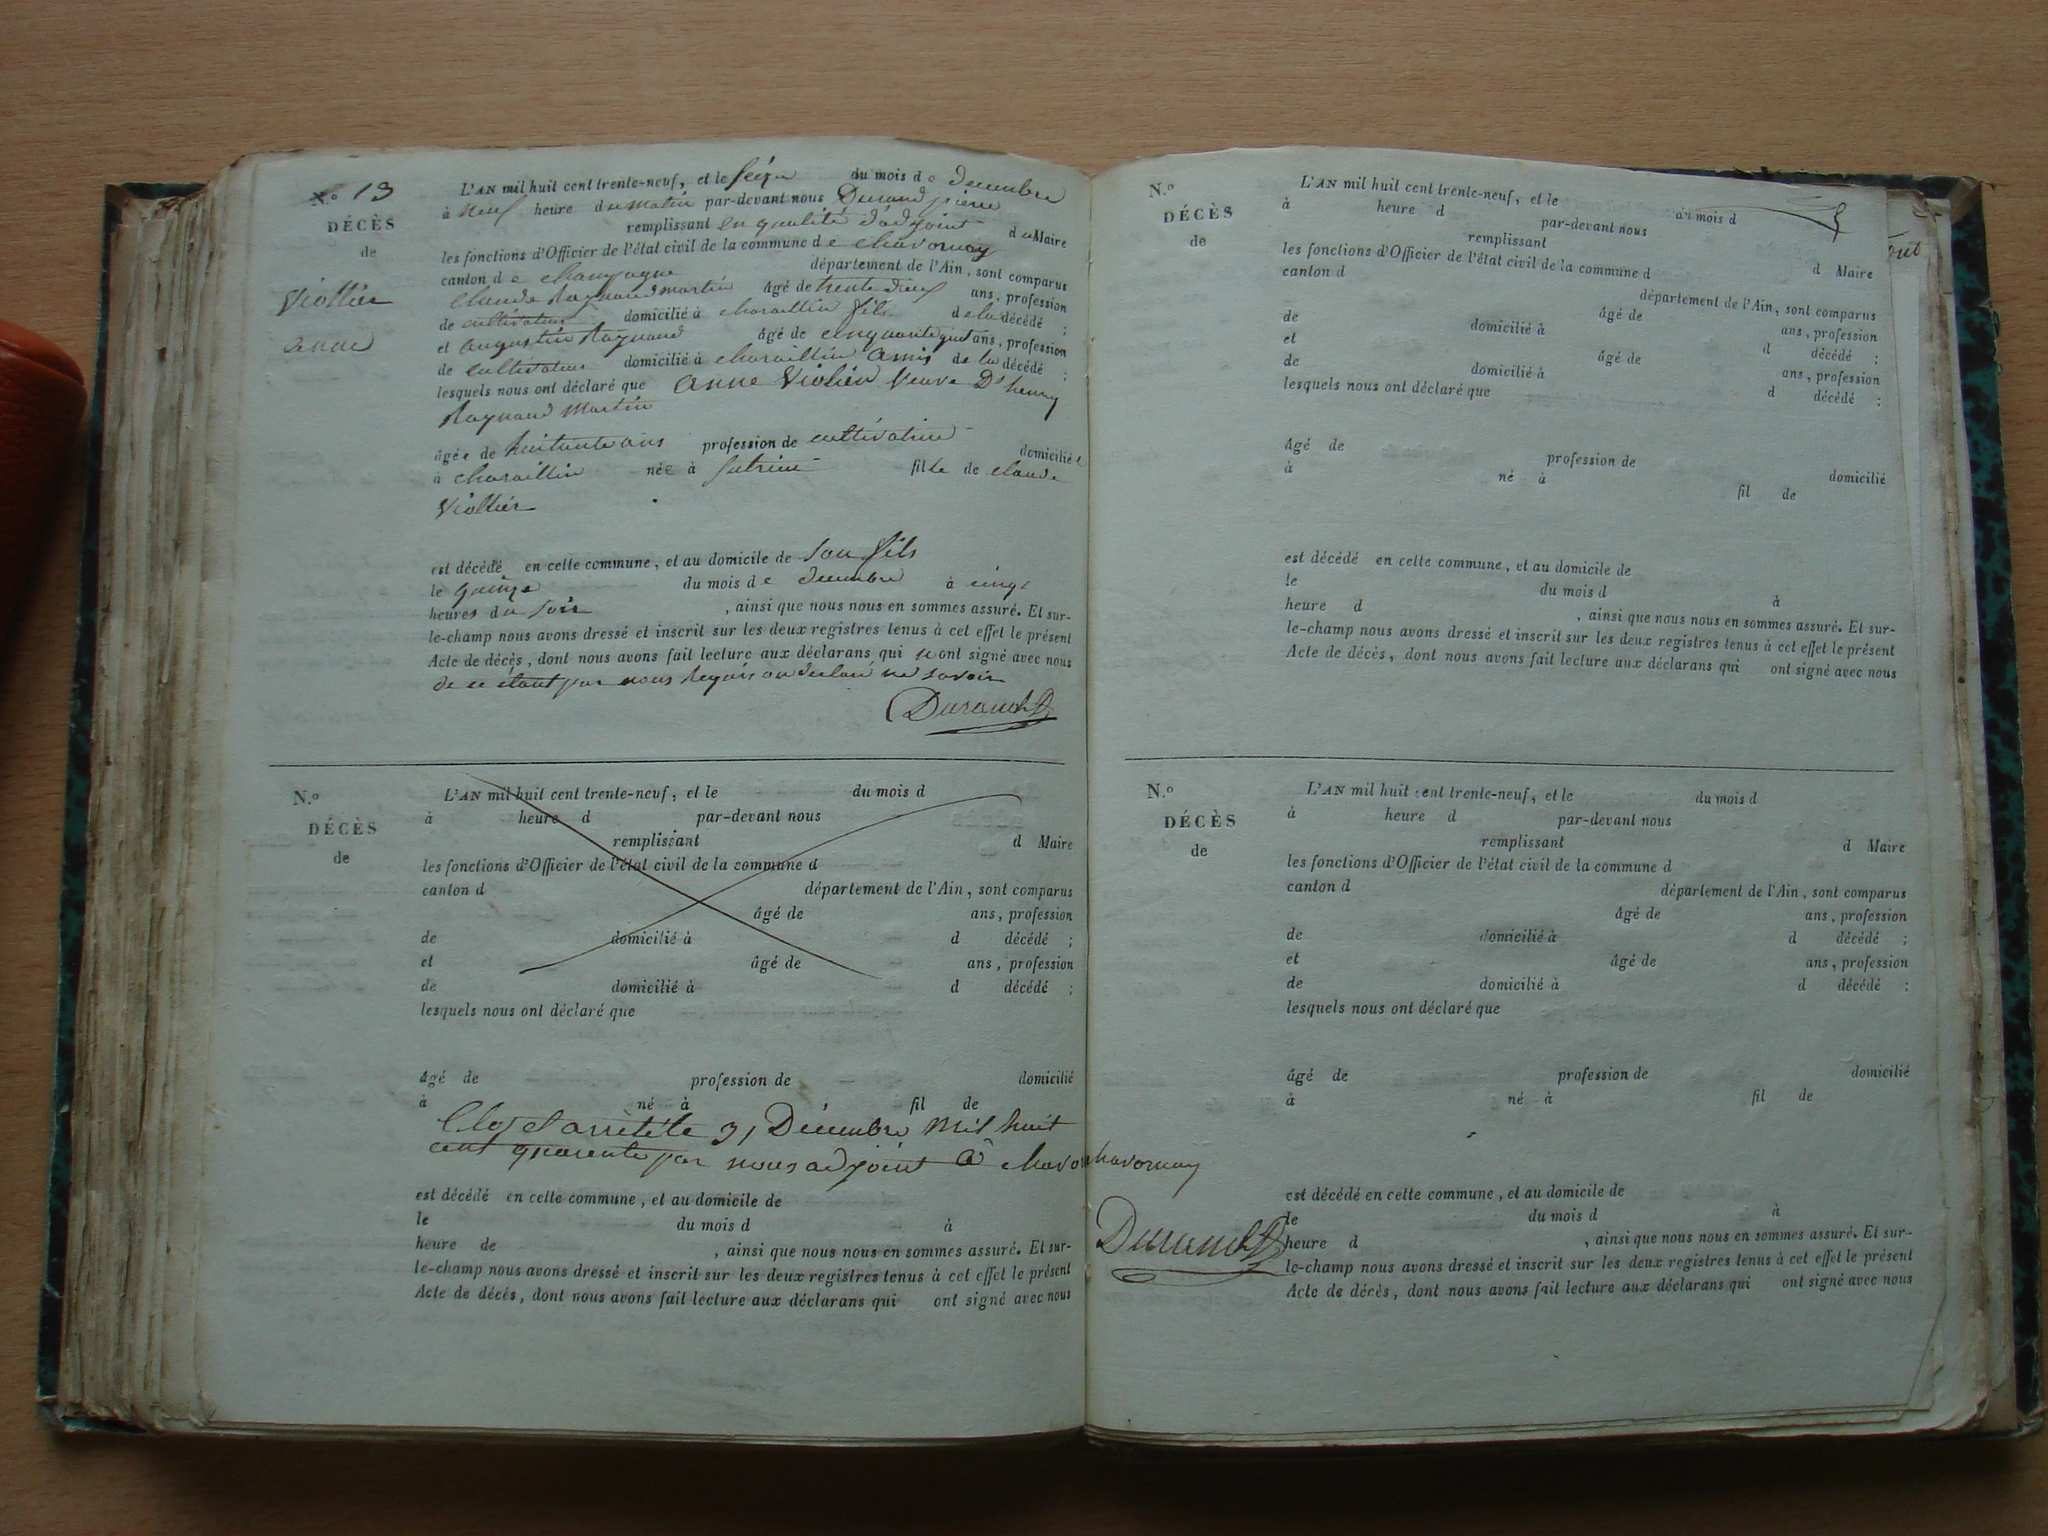 N.o 13
DÉCÈS
de
Viollier
anne
L'AN mil huit cent trente-neuf, et le seize du mois de decembre
à neuf heure du matin par-devant nous Durand pierre
remplissant en qualité d'adjoint du Maire
les fonctions d'Officier de l'état civil de la commune de chavornay
canton de champagne département de l'Ain, sont comparus
Claude Raynaud martin âgé de trente deux ans, profession
de cultivateur domicilié à charaillin fils de la décédé ;
et augustin Raynaud âgé de cinquante ans, profession
de cultivateur domicilié à charaillin amis de la décédé ;
lesquels nous ont déclaré que anne Violier veuve D' henry
Raynaud Martin
âgée de huitante ans profession de cultivatrice domiciliée
à charaillin née à fille de claude
Viollier
est décédé en cette commune, et au domicile de son fils
le quinze du mois de decembre à cinq
heures du soir , ainsi que nous nous en sommes assuré. Et sur-
le-champ nous avons dressé et inscrit sur les deux registres tenus à cet effet le présent
Acte de décès, dont nous avons fait lecture aux déclarans qui nont signé avec nous
de ce étant par nous Requis on declaré ne savoir
Durand
N.o
DÉCÈS
de
L'AN mil huit cent trente-neuf, et le du mois d
à heure d par-devant nous
remplissant d Maire
les fonctions d'Officier de l'état civil de la commune d
canton d département de l'Ain, sont comparus
âgé de ans, profession
de domicilié à d décédé ;
et âgé de ans, profession
de domicilié à d décédé ;
lesquels nous ont déclaré que
âgé de profession de domicilié
à né à fil de
Clos et arrêté le 31 Décembre mil huit
cent quarente par nous adjoint à chavornay
est décédé en cette commune, et au domicile de
le du mois d à
heure de , ainsi que nous nous en sommes assuré. Et sur-
le-champ nous avons dressé et inscrit sur les deux registres tenus à cet effet le présent
Acte de décès, dont nous avons fait lecture aux déclarans qui ont signé avec nous
N.o
DÉCÈS
de
L'AN mil huit cent trente-neuf, et le du mois d
à heure d par-devant nous
remplissant d Maire
les fonctions d'Officier de l'état civil de la commune d
canton d département de l'Ain, sont comparus
âgé de ans, profession
de domicilié à d décédé ;
et âgé de ans, profession
de domicilié à d décédé ;
lesquels nous ont déclaré que
âgé de profession de domicilié
à né à fil de
est décédé en cette commune, et au domicile de
le du mois d à
heure d , ainsi que nous nous en sommes assuré. Et sur-
le-champ nous avons dressé et inscrit sur les deux registres tenus à cet effet le présent
Acte de décès, dont nous avons fait lecture aux déclarans qui ont signé avec nous
N.o
DÉCÈS
de
L'AN mil huit cent trente-neuf, et le du mois d
à heure d par-devant nous
remplissant d Maire
les fonctions d'Officier de l'état civil de la commune d
canton d département de l'Ain, sont comparus
âgé de ans, profession
de domicilié à d décédé ;
et âgé de ans, profession
de domicilié à d décédé ;
lesquels nous ont déclaré que
âgé de profession de domicilié
à né à fil de
chavornay
est décédé en cette commune, et au domicile de
le du mois d à
Durand
heure d , ainsi que nous nous en sommes assuré. Et sur-
le-champ nous avons dressé et inscrit sur les deux registres tenus à cet effet le présent
Acte de décès, dont nous avons fait lecture aux déclarans qui ont signé avec nous